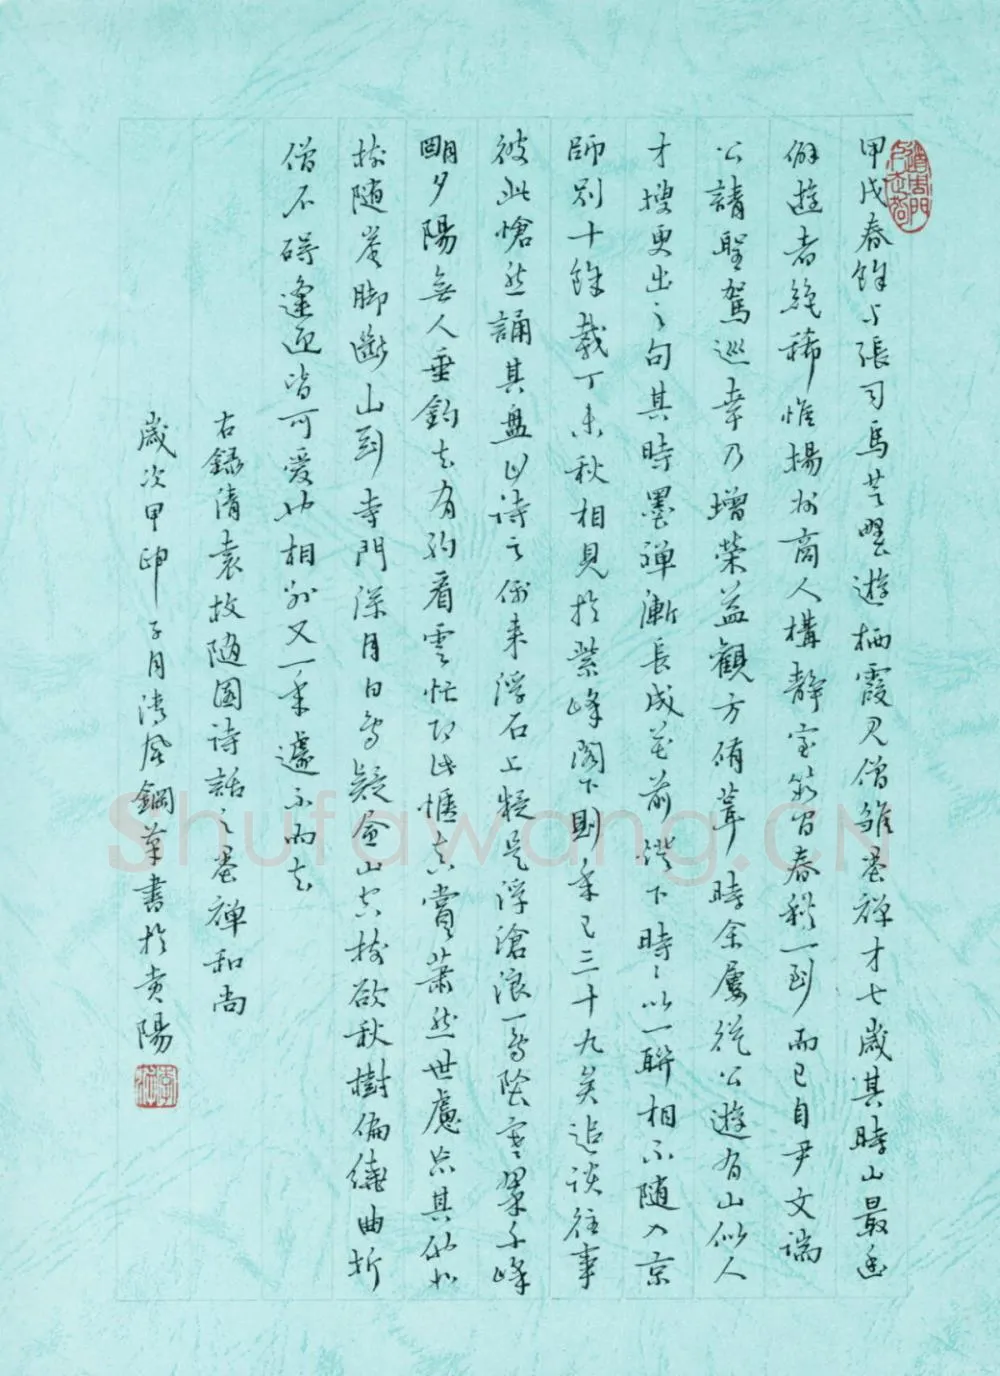 甲戌春余与張司馬芸墅遊栖霞見僧雏墨禅才七歲其時山最幽
僻遊者絶稀惟揚州商人構静室數間春秋一到而已自尹文端
公請聖駕巡幸乃增榮益觀方脩葺時余屢從公遊有山似人
才搜更出之句其時墨禅漸長成花前燈下時時以一聯相示随入京
師别十餘載丁未秋相見於紫峰閣下則年已三十九矣追談往事
彼此愴然誦其盘山诗云偶来浮石上疑是浮滄浪一鸟堕寒翠千峰
明夕陽無人垂釣去有约看雲忙即此惬真賞蕭然世慮忘其
松随崖脚斷山到寺門深月白鸟疑 山空樹欲秋樹偏繞曲折
僧不碍逢迎皆可爱也相别又一年遽示而去
右録清袁枚随園诗話之墨禅和尚
歲次甲申子月清风鋼草書於贵陽
Shufawang.CN